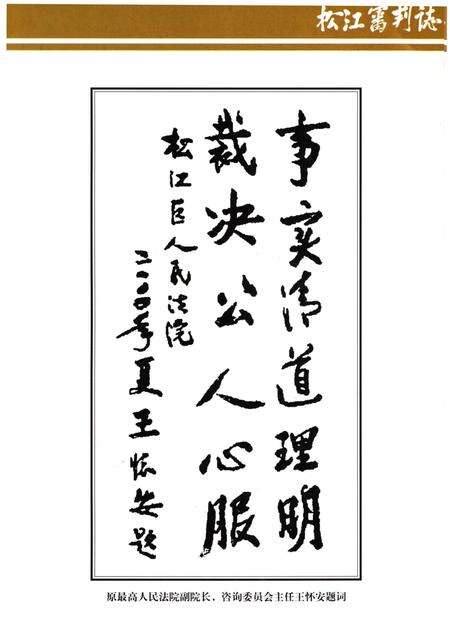 松江審判誌
事实清道理明
裁决公人心服
松江区人民法院
二〇〇〇年夏王怀安题
原最高人民法院副院长，咨询委员会主任王怀安题词